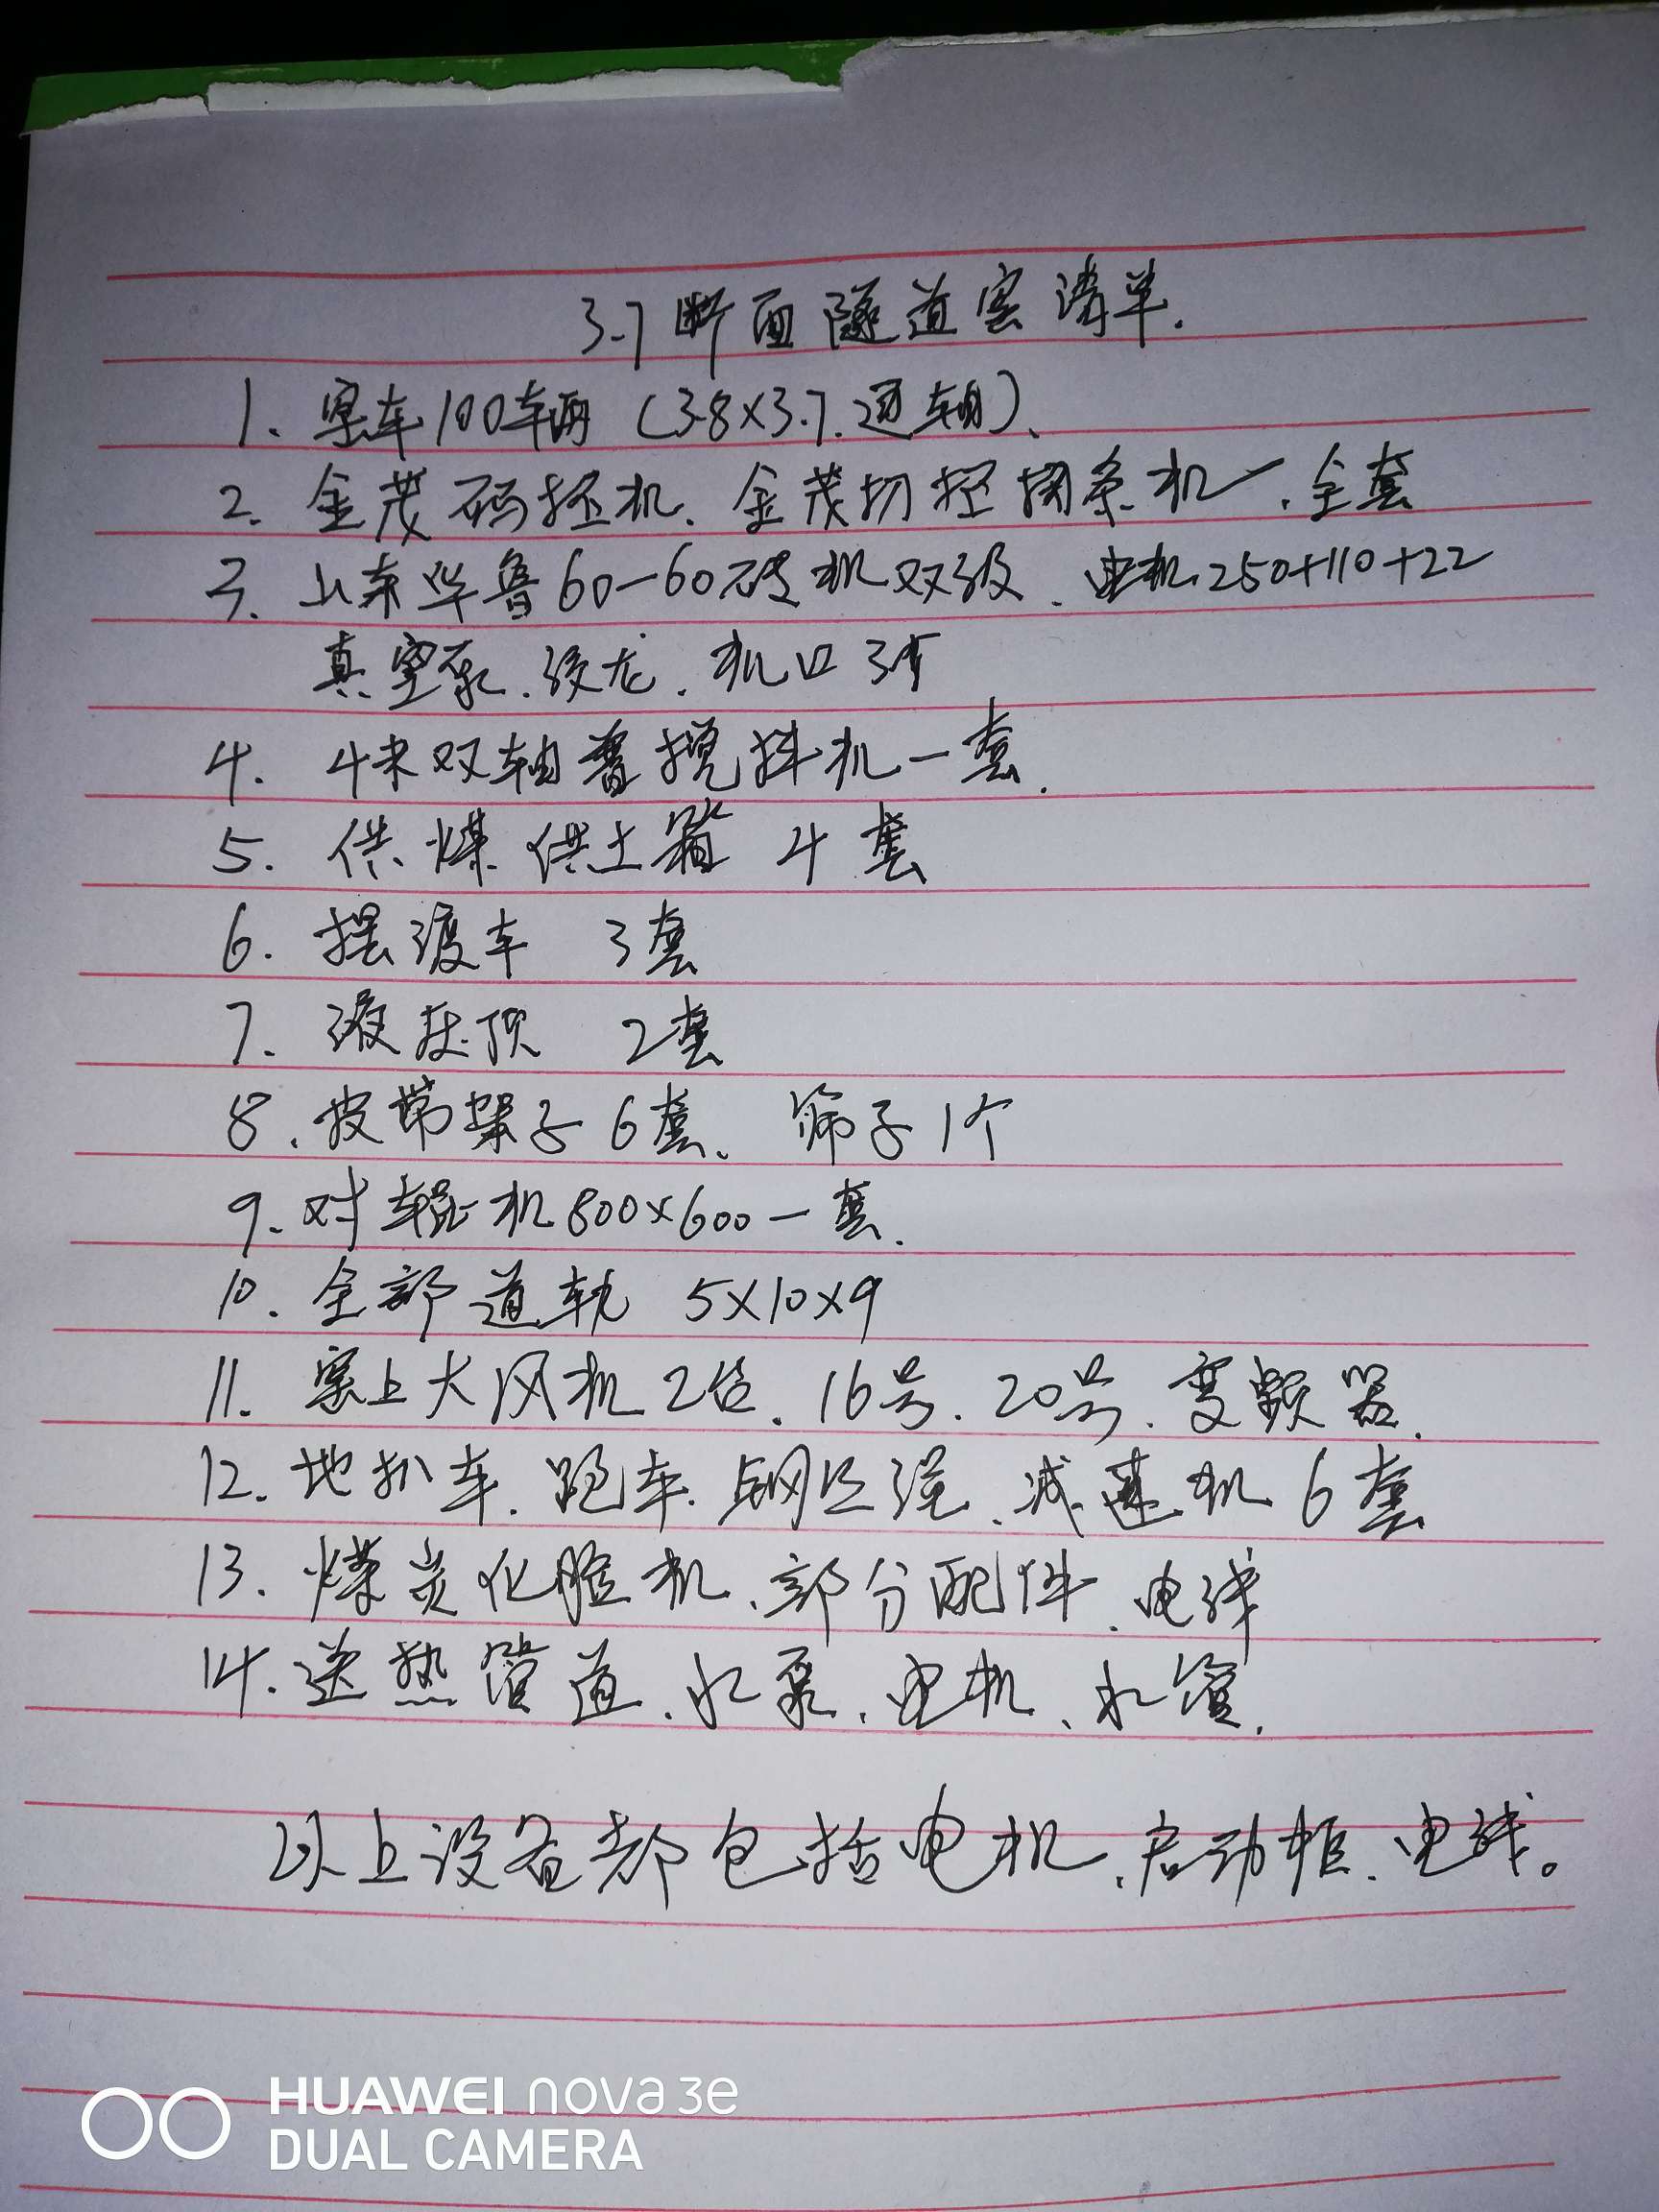 3.7断面隧道窑清单.
1. 窑车100车辆 (3.8×3.7.通轴)、
2. 金茂码坯机. 金茂切坯切条机一.全套
3. 山东华鲁60-60砖机双级. 电机250+110+22
真空泵.绞龙. 机口3个
4. 4米双轴搅拌机一套.
5. 供煤供土箱 4套
6. 摆渡车 3套
7. 液压顶 2套
8. 皮带架子6套、筛子1个
9. 对辊机800×600一套.
10. 全部道轨 5×10×9
11. 窑上大风机2台. 16号. 20号. 变频器.
12. 地扒车. 跑车. 钢丝绳. 减速机6套
13. 煤炭化验机、部分配件. 电线
14. 送热管道. 水泵. 电机、水管.
以上设备都包括电机.启动柜.电线。
HUAWEI nova 3e
DUAL CAMERA